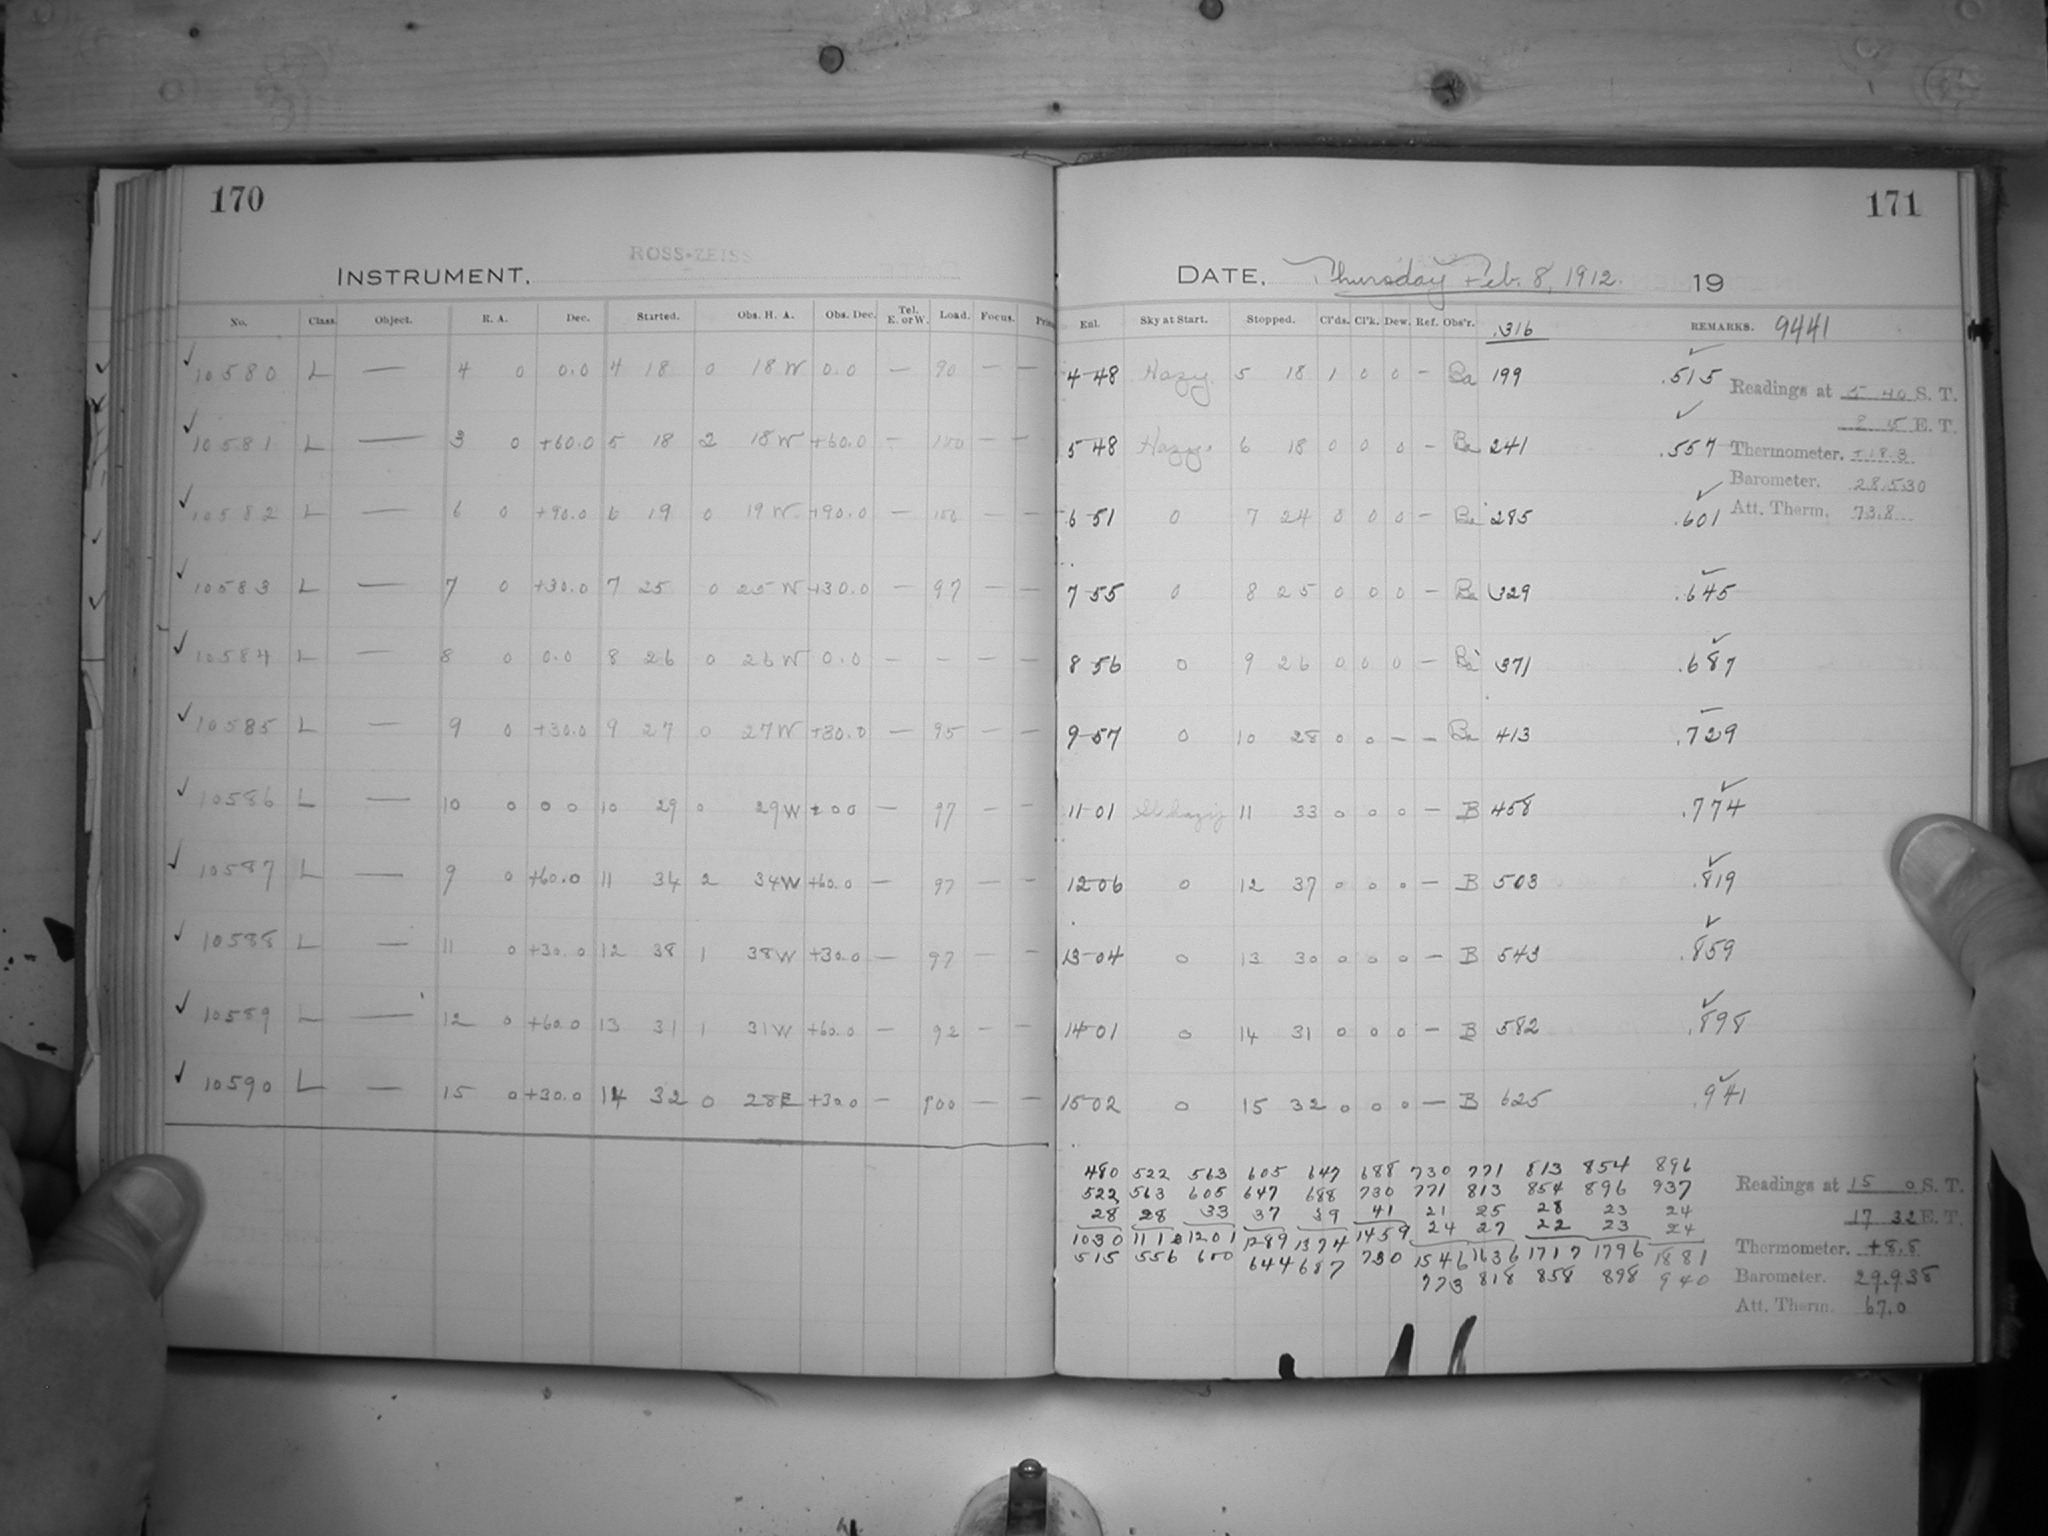 170
ROSS-ZEISS
INSTRUMENT.
No. Class. Object. R. A. Dec. Started. Obs. H. A. Obs. Dec. Tel. E. or W. Load. Focus.
10580 L — 4 0 0.0 4 18 0 18 W 0.0 — 90 — —
10581 L — 3 0 +60.0 5 18 2 18 W +60.0 — 100 — —
10582 L — 6 0 +90.0 6 19 0 19 W +90.0 — 100 — —
10583 L — 7 0 +30.0 7 25 0 25 W +30.0 — 97 — —
10584 L — 8 0 0.0 8 26 0 26 W 0.0 — — — —
10585 L — 9 0 +30.0 9 27 0 27 W +30.0 — 95 — —
10586 L — 10 0 0 0 10 29 0 29 W 0 0 — 97 — —
10587 L — 9 0 +60.0 11 34 2 34 W +60.0 — 97 — —
10588 L — 11 0 +30.0 12 38 1 38 W +30.0 — 97 — —
10589 L — 12 0 +60.0 13 31 1 31 W +60.0 — 92 — —
10590 L — 15 0 +30.0 14 32 0 28 E +30.0 — 100 — —
171
DATE. Thursday Feb. 8, 1912. 19
Enl. Sky at Start. Stopped. Cl'ds. Cl'k. Dew. Ref. Obs'r. .316 REMARKS. 9441
4-48 Hazy. 5 18 1 0 0 — Ba 199 .515
5-48 Hazy. 6 18 0 0 0 — Ba 241 .557
6-51 0 7 24 0 0 0 — Ba 285 .601
7-55 0 8 25 0 0 0 — Ba 329 .645
8 56 0 9 26 0 0 0 — Ba 371 .687
9-57 0 10 28 0 0 — — Ba 413 .729
11-01 Sl hazy 11 33 0 0 0 — B 458 .774
12-06 0 12 37 0 0 0 — B 503 .819
13-04 0 13 30 0 0 0 — B 543 .859
14-01 0 14 31 0 0 0 — B 582 .898
15-02 0 15 32 0 0 0 — B 625 .941
Readings at 5 40 S. T.
2 5 E. T.
Thermometer. +18.3
Barometer. 28.530
Att. Therm. 73.8
480 522 563 605 647 688 730 771 813 854 896
522 563 605 647 688 730 771 813 854 896 937
28 28 33 37 39 41 21 25 28 23 24
24 27 22 23 24
1030 1113 1201 1289 1374 1459 1546 1636 1717 1796 1881
515 556 600 644 687 730 773 818 858 898 940
Readings at 15 0 S. T.
17 32 E. T.
Thermometer. +8.8
Barometer. 29.938
Att. Therm. 67.0